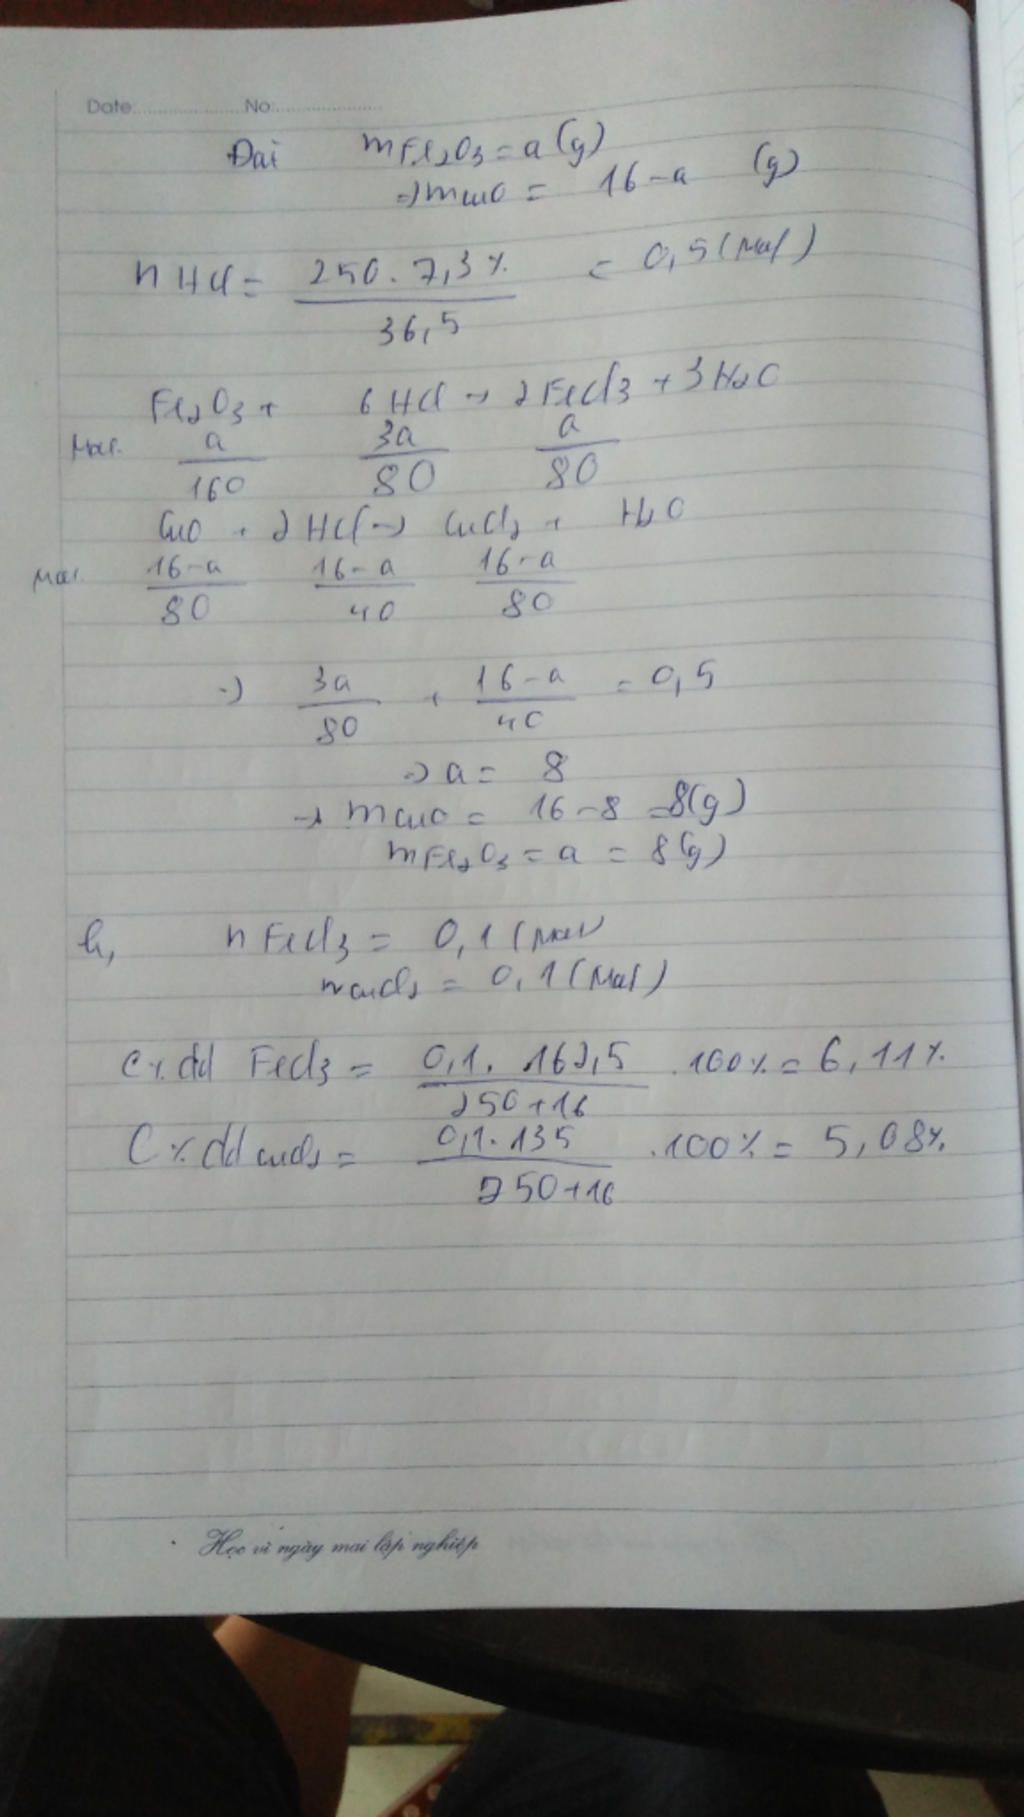 Date: No:
Đặt mFe2O3 = a (g)
→ mCuO = 16-a (g)
nHCl = 250.7,3% / 36,5 = 0,5 (Mol)
Fe2O3 + 6HCl → 2FeCl3 + 3H2O
Mol. a/160 3a/80 a/80
CuO + 2HCl → CuCl2 + H2O
Mol. 16-a/80 16-a/40 16-a/80
→ 3a/80 + 16-a/40 = 0,5
→ a = 8
→ mCuO = 16-8 = 8(g)
mFe2O3 = a = 8(g)
b, nFeCl3 = 0,1 (Mol)
nCuCl2 = 0,1 (Mol)
C% dd FeCl3 = 0,1.162,5 / 250+16 .100% = 6,11%
C% dd CuCl2 = 0,1.135 / 250+16 .100% = 5,08%
Học vì ngày mai lập nghiệp